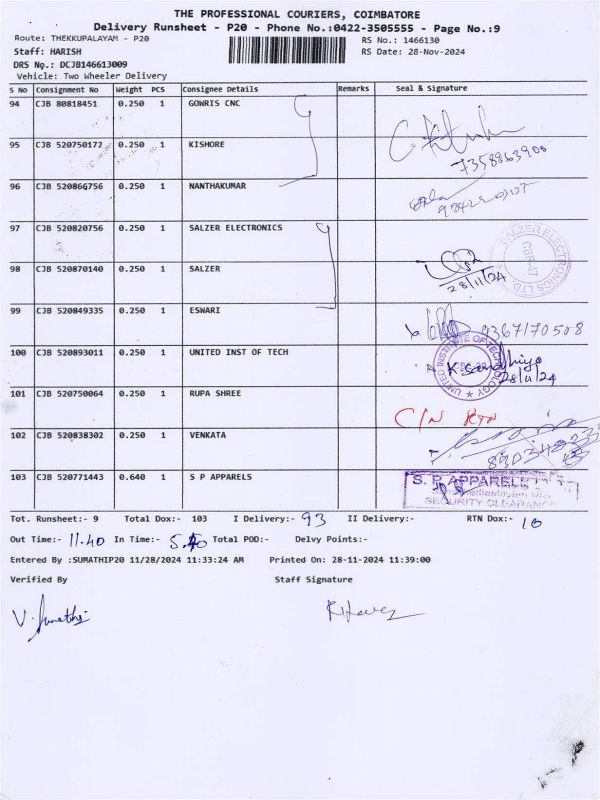 THE PROFESSIONAL COURIERS, COIMBATORE
Delivery Runsheet - P20 - Phone No.:0422-3505555 - Page No.:9
Route: THEKKUPALAYAM - P20 RS No.: 1466130
Staff: HARISH RS Date: 28-Nov-2024
DRS No.: DCJB146613009
Vehicle: Two Wheeler Delivery
S No Consignment No Weight PCS Consignee Details Remarks Seal & Signature
94 CJB 80818451 0.250 1 GOWRIS CNC
95 CJB 520750172 0.250 1 KISHORE
7358863900
96 CJB 520866756 0.250 1 NANTHAKUMAR
97 CJB 520820756 0.250 1 SALZER ELECTRONICS
SALZER ELECTRONICS LTD
CBE-47
98 CJB 520870140 0.250 1 SALZER
28/11/24
99 CJB 520849335 0.250 1 ESWARI
9367170508
100 CJB 520893011 0.250 1 UNITED INST OF TECH
UNITED INSTITUTE OF TECHNOLOGY
K. Sandhiya
28/11/24
101 CJB 520750064 0.250 1 RUPA SHREE
C/N RTN
102 CJB 520838302 0.250 1 VENKATA
103 CJB 520771443 0.640 1 S P APPARELS
S. P. APPARELS LTD
SECURITY CLEARANCE
Tot. Runsheet:- 9 Total Dox:- 103 I Delivery:- 93 II Delivery:- RTN Dox:- 10
Out Time:- 11.40 In Time:- Total POD:- Delvy Points:-
Entered By :SUMATHIP20 11/28/2024 11:33:24 AM Printed On: 28-11-2024 11:39:00
Verified By Staff Signature
V. Sumathi